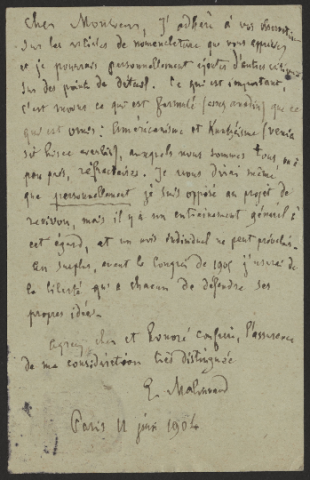 Cher Monsieur, J'adhère à vos observations
sur les articles de nomenclature que vous
et je pourrais personnellement ajouter d'autres critiques
sur des points de détail. Ce qui est important
c'est moins ce qui est formulé que ce
qui est omis : Américanisme et Kuntzéisme (venia
sit hisce verbis), auxquels nous sommes tous, ou à
peu près, réfractaires. Je vous dirai même
que personnellement je suis opposé au projet de
revision, mais il y a un entraînement général à
cet égard, et un avis individuel ne peut prévaloir.
Au surplus, avant le Congrès de 1905 j'userai de
la liberté qu'a chacun de défendre ses
propres idées.
Agréez, cher et honoré confrère, l'assurance
de ma considération très distinguée
E. Malinvaud
Paris 11 juin 1904